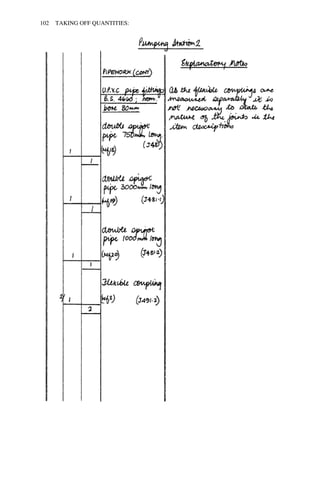 102 TAKING OFF QUANTITIES:
Pumping Station 2
Explanatory Notes
PIPEWORK (CONT)
U.P.V.C pipe fittings
B.S. 4660; nom.
bore 80mm
As the flexible couplings are
measured separately it is
not necessary to state the
nature of the joints in the
item descriptions
double spigot
pipe 750mm long
1 (ref18) (J481)
1
double spigot
pipe 3000mm long
1 (ref19) (J481.1)
1
double spigot
pipe 1000mm long
1 (ref20) (J481.2)
1
Flexible coupling
2/ 1 (ref8) (J491.2)
2